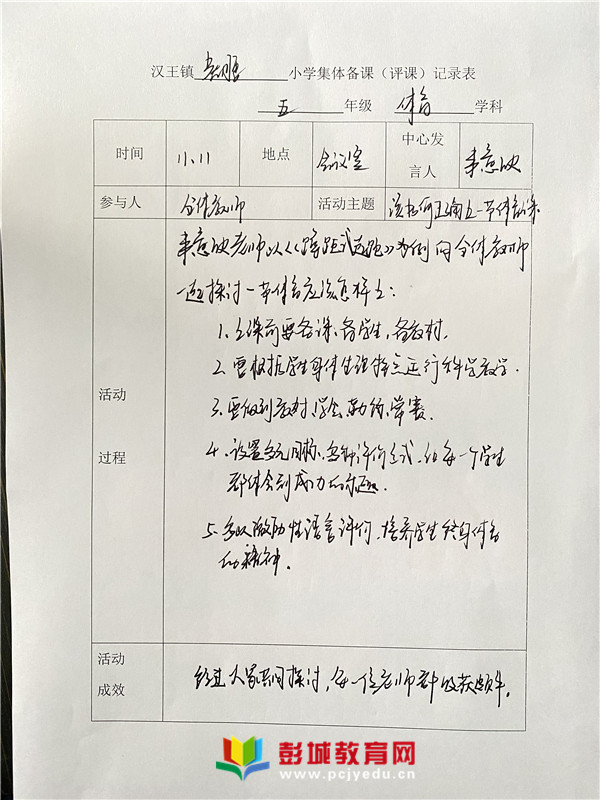 汉王镇 小学集体备课（评课）记录表
五 年级 体育 学科
时间 11.11 地点 会议室 中心发言人
参与人 全体教师 活动主题 一节体育课
老师以《跨距式 》为例 向全体教师
一起探讨一节体育应该怎样上：
1.上课前要备课、备学生，备教材.
2.要根据学生身体生理特点进行科学教学.
活动
3.要做到教材、学会、勤练、常赛.
过程
4.设置多元目标、多种评价方式，让每一个学生
都体会到成功的乐趣.
5.多以激励性语言评价，培养学生终身体育
的精神.
活动
成效
经过大家共同探讨，每一位老师都收获颇丰.
彭城教育网
www.pcjyedu.cn